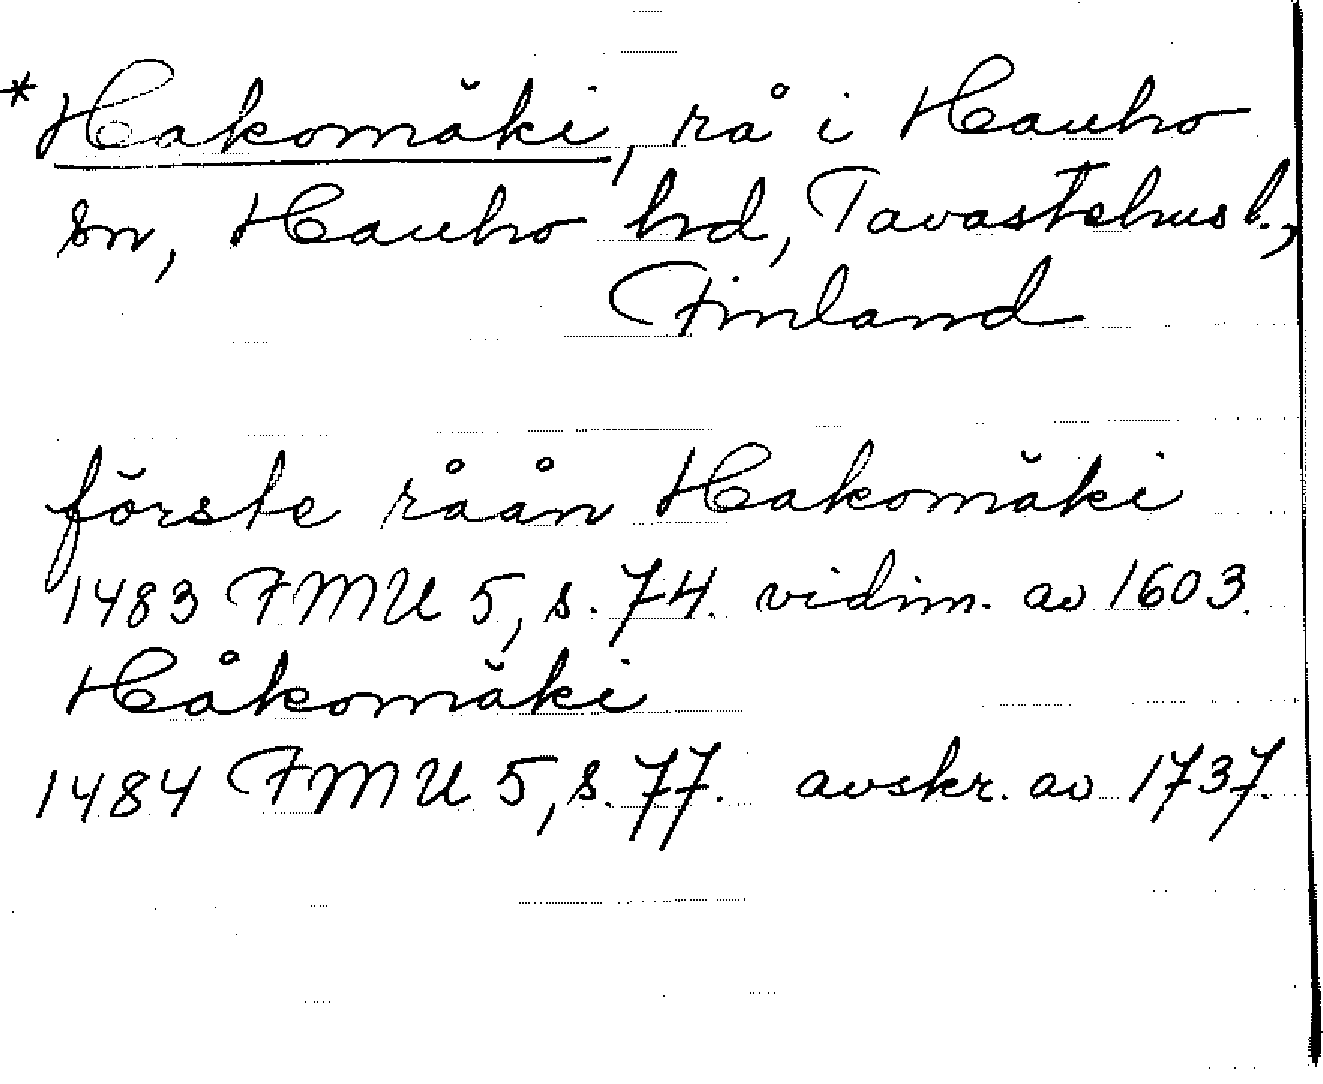 *Hakomäki, rå i Hauho
sn, Hauho hd, Tavastehus l.,
Finland
förste råån Hakomäki
1483 FMU 5, s. 74. vidim. av 1603.
Håkomäki
1484 FMU 5, s. 77. avskr. av 1737.